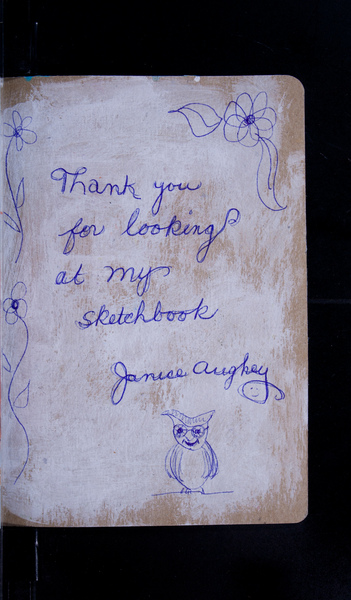 Thank you
for looking
at my
sketchbook
Janice Aughey